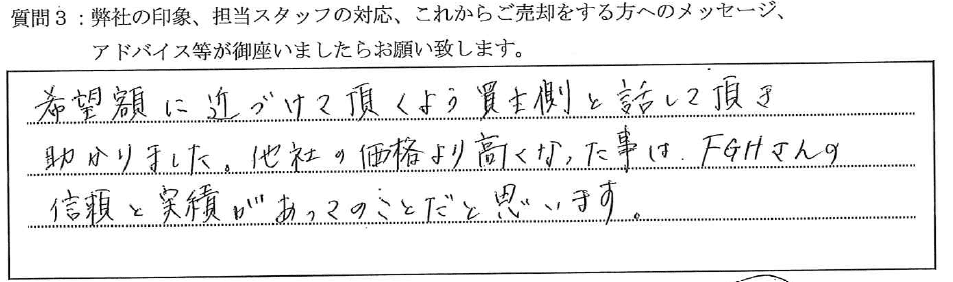 質問３：弊社の印象、担当スタッフの対応、これからご売却をする方へのメッセージ、
アドバイス等が御座いましたらお願い致します。
希望額に近づけて頂くよう買主側と話して頂き
助かりました。他社の価格より高くなった事は、FGHさんの
信頼と実績があってのことだと思います。